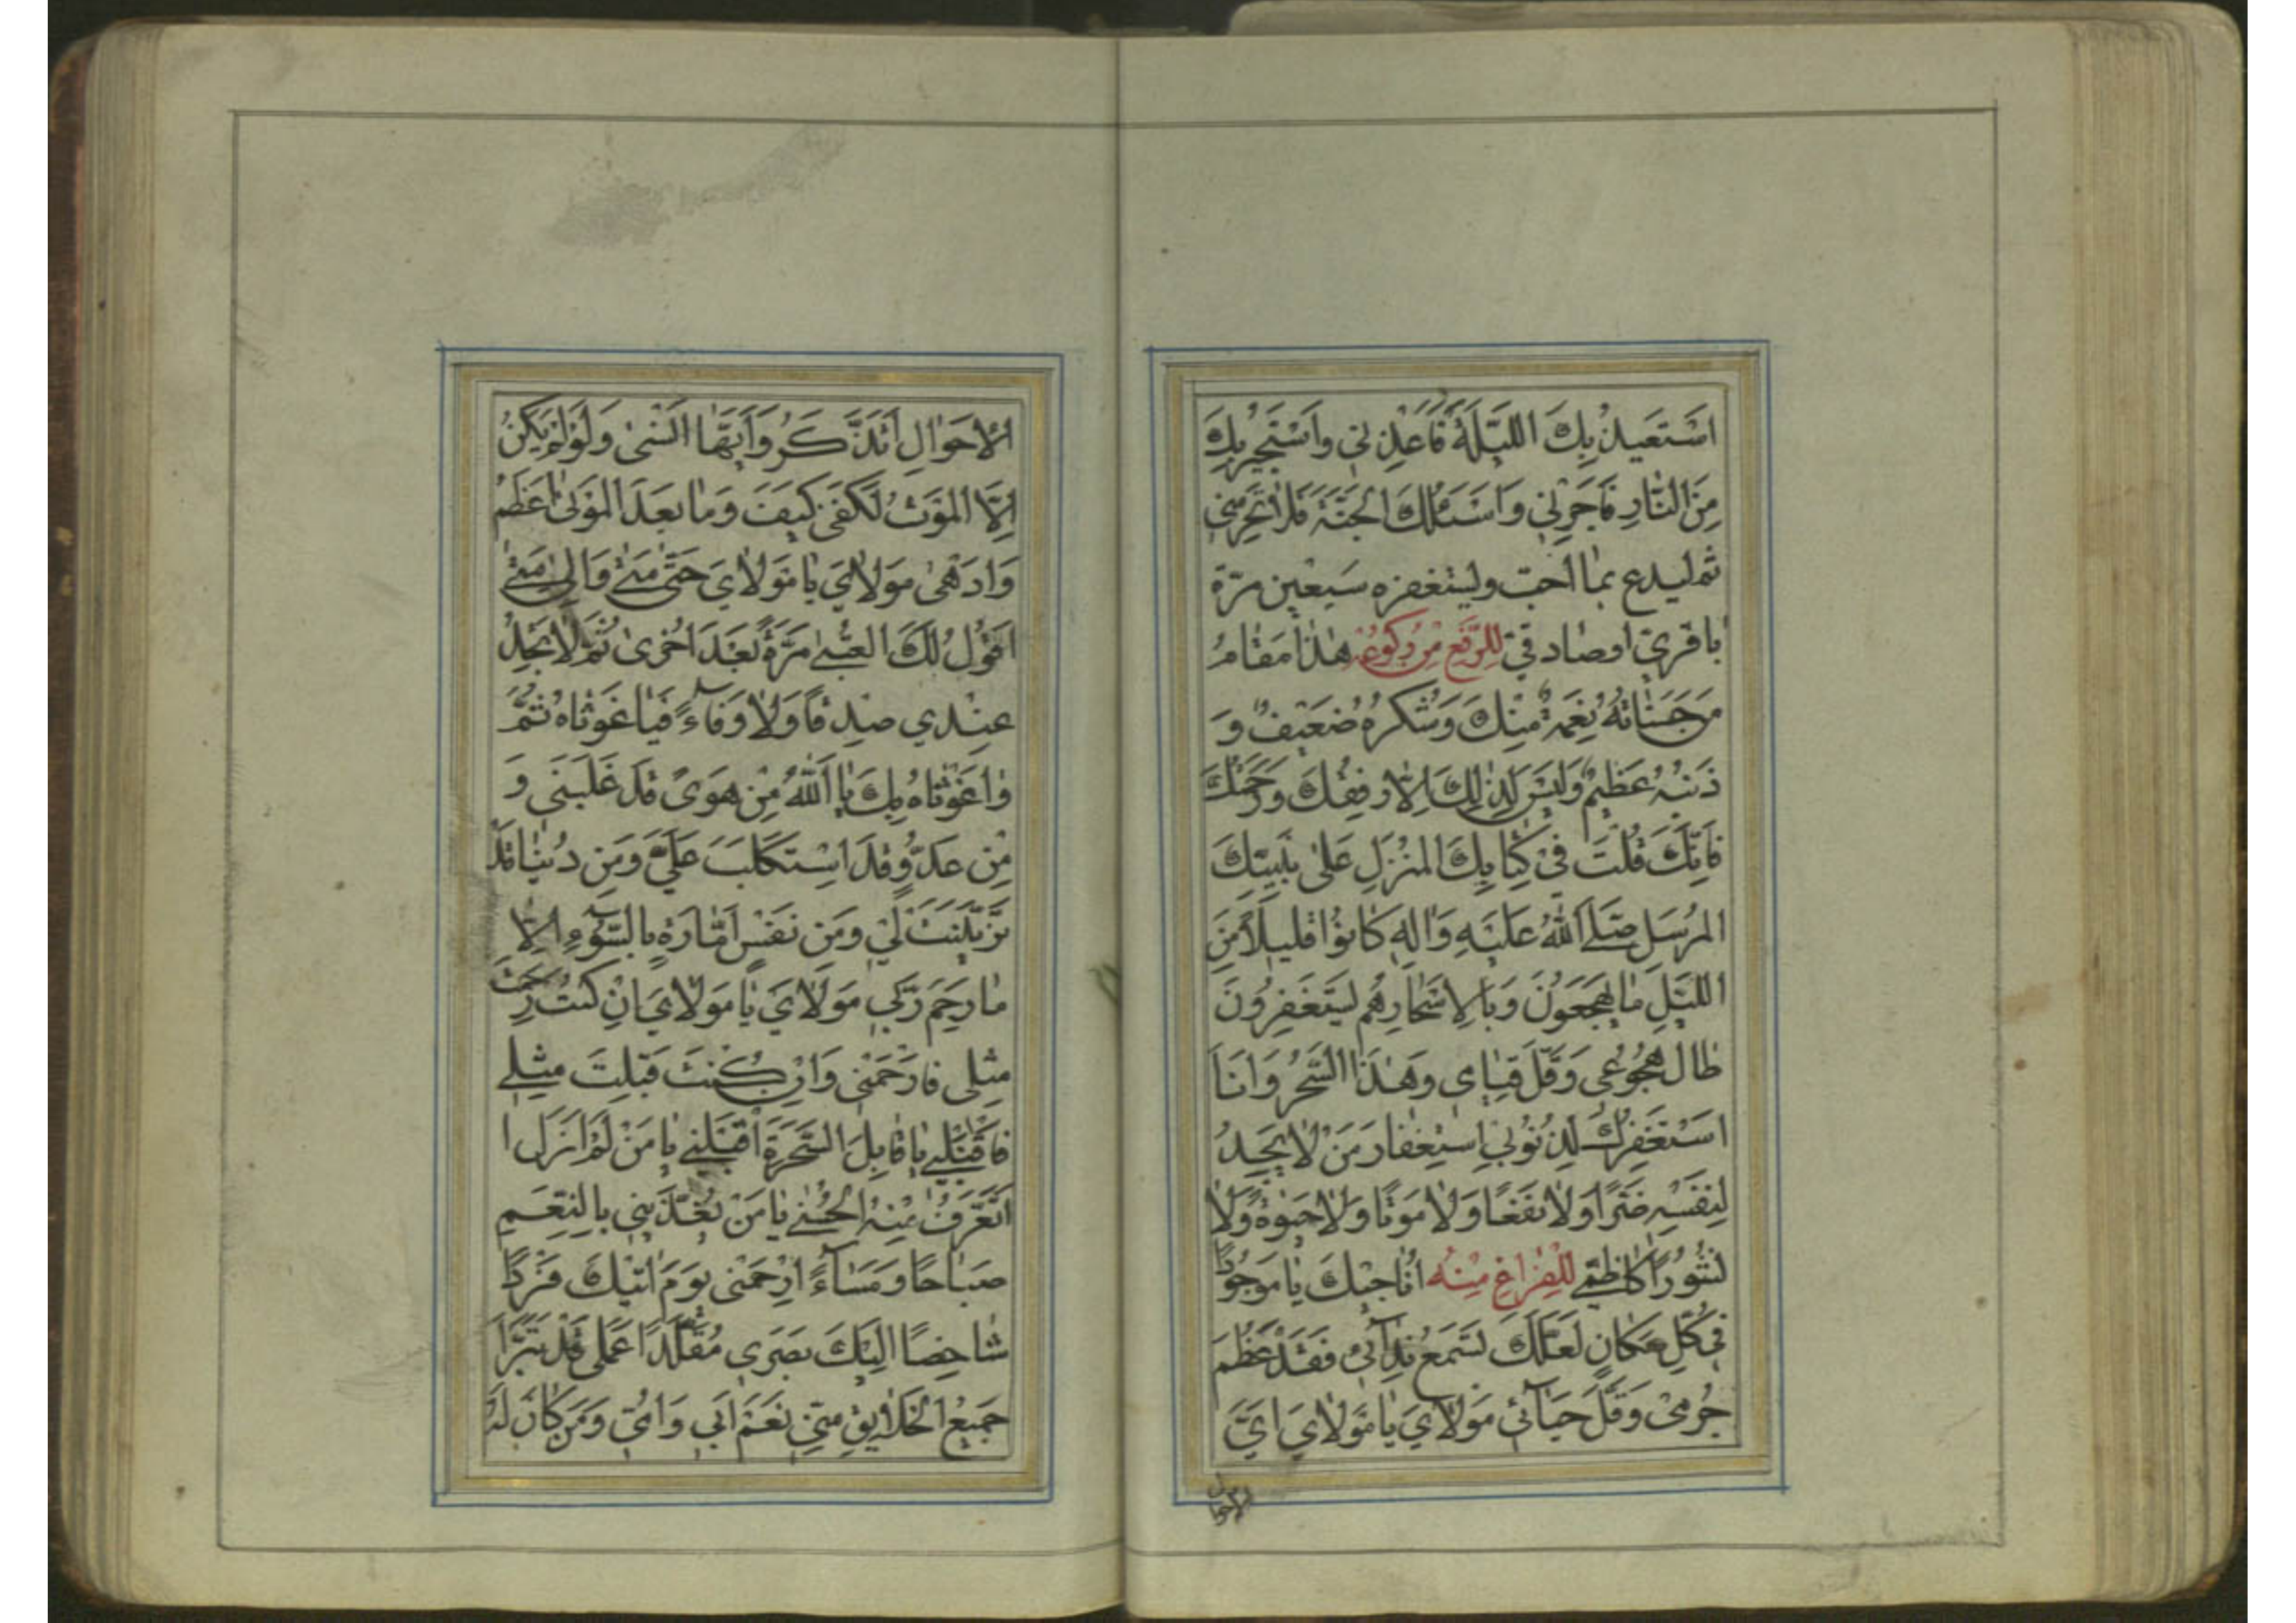 اَسْتَعيذُ بِكَ اللَّيْلَةَ فَاَعِذْنِي وَاَسْتَجيرُ بِكَ
مِنَ النّارِ فَاَجِرْنِي وَاَسْئَلُكَ الْجَنَّةَ فَلا تَحْرِمْنِي
ثم ليدع بما احب وليستغفره سبعين مرّة
باقريّ او صادقيّ لِلرَّفْعِ مِنْ رُكُوعِهِ هٰذا مَقامُ
مَن حَسَناتُهُ نِعْمَةٌ مِنْكَ وَشُكْرُهُ ضَعيفٌ وَ
ذَنْبُهُ عَظيمٌ وَلَيْسَ لِذٰلِكَ اِلّا رِفْقُكَ وَرَحْمَتُكَ
فَاِنَّكَ قُلْتَ في كِتابِكَ الْمُنْزَلِ عَلىٰ نَبِيِّكَ
الْمُرْسَلِ صَلَّى اللهُ عَلَيْهِ وَاٰلِهِ كانُوا قَليلاً مِنَ
اللَّيْلِ ما يَهْجَعُونَ وَبِالْاَسْحارِ هُمْ يَسْتَغْفِرُونَ
طالَ هُجُوعي وَقَلَّ قِيامي وَهٰذَا السَّحَرُ وَاَنَا
اَسْتَغْفِرُكَ لِذُنُوبِي اسْتِغْفارَ مَنْ لا يَجِدُ
لِنَفْسِهِ ضَرًّا وَلا نَفْعًا وَلا مَوْتًا وَلا حَيٰوةً وَلا
نُشُورًا كاظميّ لِلْفَراغِ مِنْهُ اُناجيكَ يا مَوْجُودًا
في كُلِّ مَكانٍ لَعَلَّكَ تَسْمَعُ نِدآئي فَقَدْ عَظُمَ
جُرْمي وَقَلَّ حَيآئي مَوْلايَ يا مَوْلايَ اَيَّ
الاحوال
الْاَحْوالِ اَتَذَكَّرُ وَاَيَّها اَنْسىٰ وَلَوْ لَمْ يَكُنْ
اِلَّا الْمَوْتُ لَكَفىٰ كَيْفَ وَما بَعْدَ الْمَوْتِ اَعْظَمُ
وَاَدْهىٰ مَوْلايَ يا مَوْلايَ حَتّىٰ مَتىٰ وَاِلىٰ مَتىٰ
اَقُولُ لَكَ الْعُتْبىٰ مَرَّةً بَعْدَ اُخْرىٰ ثُمَّ لا تَجِدُ
عِنْدي صِدْقًا وَلا وَفاءً فَيا غَوْثاهُ ثُمَّ
وا غَوْثاهُ بِكَ يا اَللهُ مِنْ هَوىً قَدْ غَلَبَني وَ
مِنْ عَدُوٍّ قَدِ اسْتَكْلَبَ عَلَيَّ وَمِن دُنْيا قَدْ
تَزَيَّنَتْ لي وَمَن نَفْسٍ اَمّارَةٍ بِالسُّوءِ اِلّا
ما رَحِمَ رَبّي مَوْلايَ يا مَوْلايَ اِنْ كُنْتَ رَحِمْتَ
مِثْلي فَارْحَمْني وَاِنْ كُنْتَ قَبِلْتَ مِثْلي
فَاقْبَلْني يا قابِلَ السَّحَرَةِ اقْبَلْني يا مَنْ لَمْ اَزَلْ ا
اَتَعَرَّفُ مِنْهُ الْحُسْنىٰ يا مَنْ يُغَذِّيني بِالنِّعَمِ
صَباحًا وَمَسآءً ارْحَمْني يَوْمَ اٰتيكَ فَرْدًا
شاخِصًا اِلَيْكَ بَصَري مُقَلَّدًا عَمَلي قَدْ تَبَرَّاَ
جَميعُ الْخَلايِقِ مِنّي نَعَمْ اَبي وَاُمّي وَمَنْ كانَ لَهُ